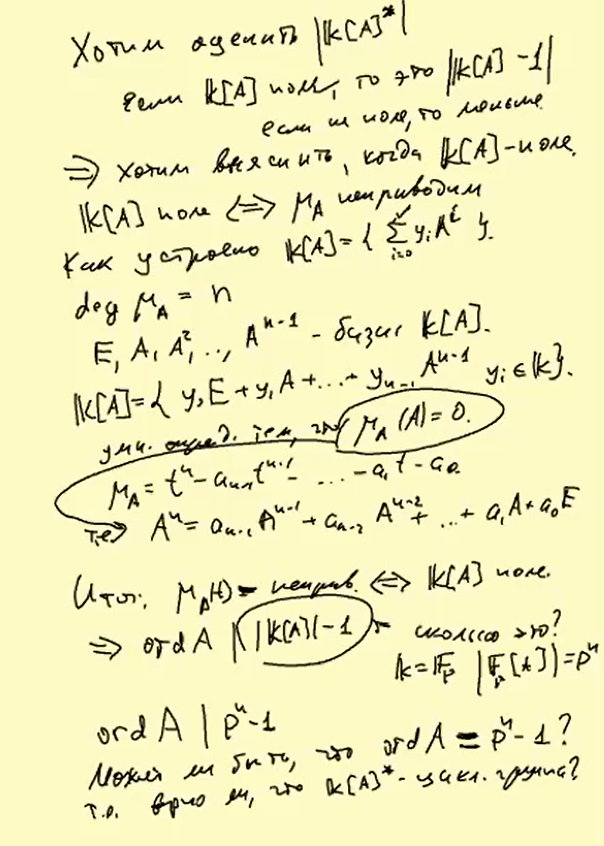 Хотим оценить |𝕜[A]*|
если 𝕜[A] поле, то это |𝕜[A] -1|
если не поле, то меньше
⇒ хотим выяснить, когда 𝕜[A]-поле.
𝕜[A] поле ⇔ μ_A неприводим
Как устроено 𝕜[A]={ ∑_{i=0} y_i A^i }.
deg μ_A = n
E, A, A², .., A^{n-1} - базис 𝕜[A].
𝕜[A]={ y_0 E + y_1 A +...+ y_{n-1} A^{n-1} y_i ∈ 𝕜}.
умн. опред. тем, что μ_A (A) = 0.
μ_A = t^n - a_{n-1} t^{n-1} - ... - a_1 t - a_0
т.е. A^n = a_{n-1} A^{n-1} + a_{n-2} A^{n-2} + ... + a_1 A + a_0 E
Итог: μ_A(t) - неприв. ⇔ 𝕜[A] поле.
⇒ ord A | |𝕜[A]|-1 сколько это?
𝕜 = 𝔽_p |𝔽_p[A]| = p^n
ord A | p^n - 1
Может ли быть, что ord A = p^n - 1 ?
т.е. верно ли, что 𝕜[A]* - цикл. группа?